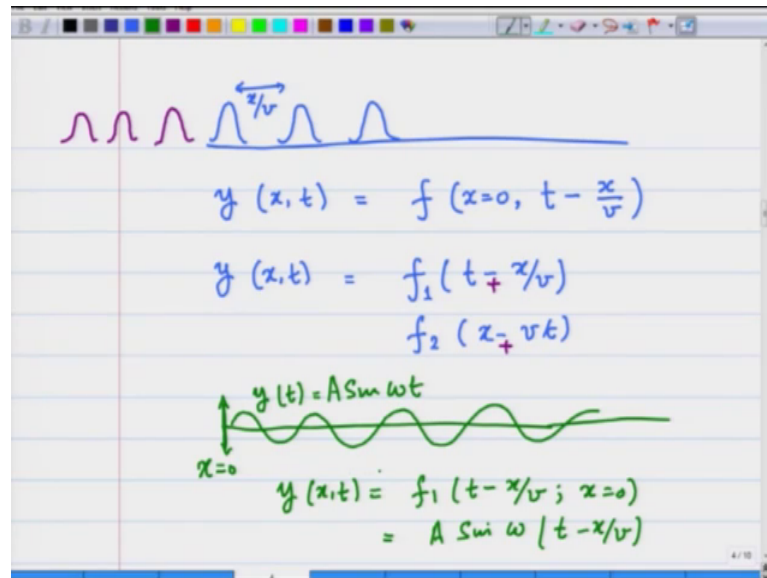 x/v
y (x,t) = f (x=0, t - x/v)
y (x,t) = f₁ (t ∓ x/v)
f₂ (x ∓ vt)
y(t) = A Sin ωt
x=0
y (x,t) = f₁ (t - x/v ; x=0)
= A Sin ω (t - x/v)
4/10